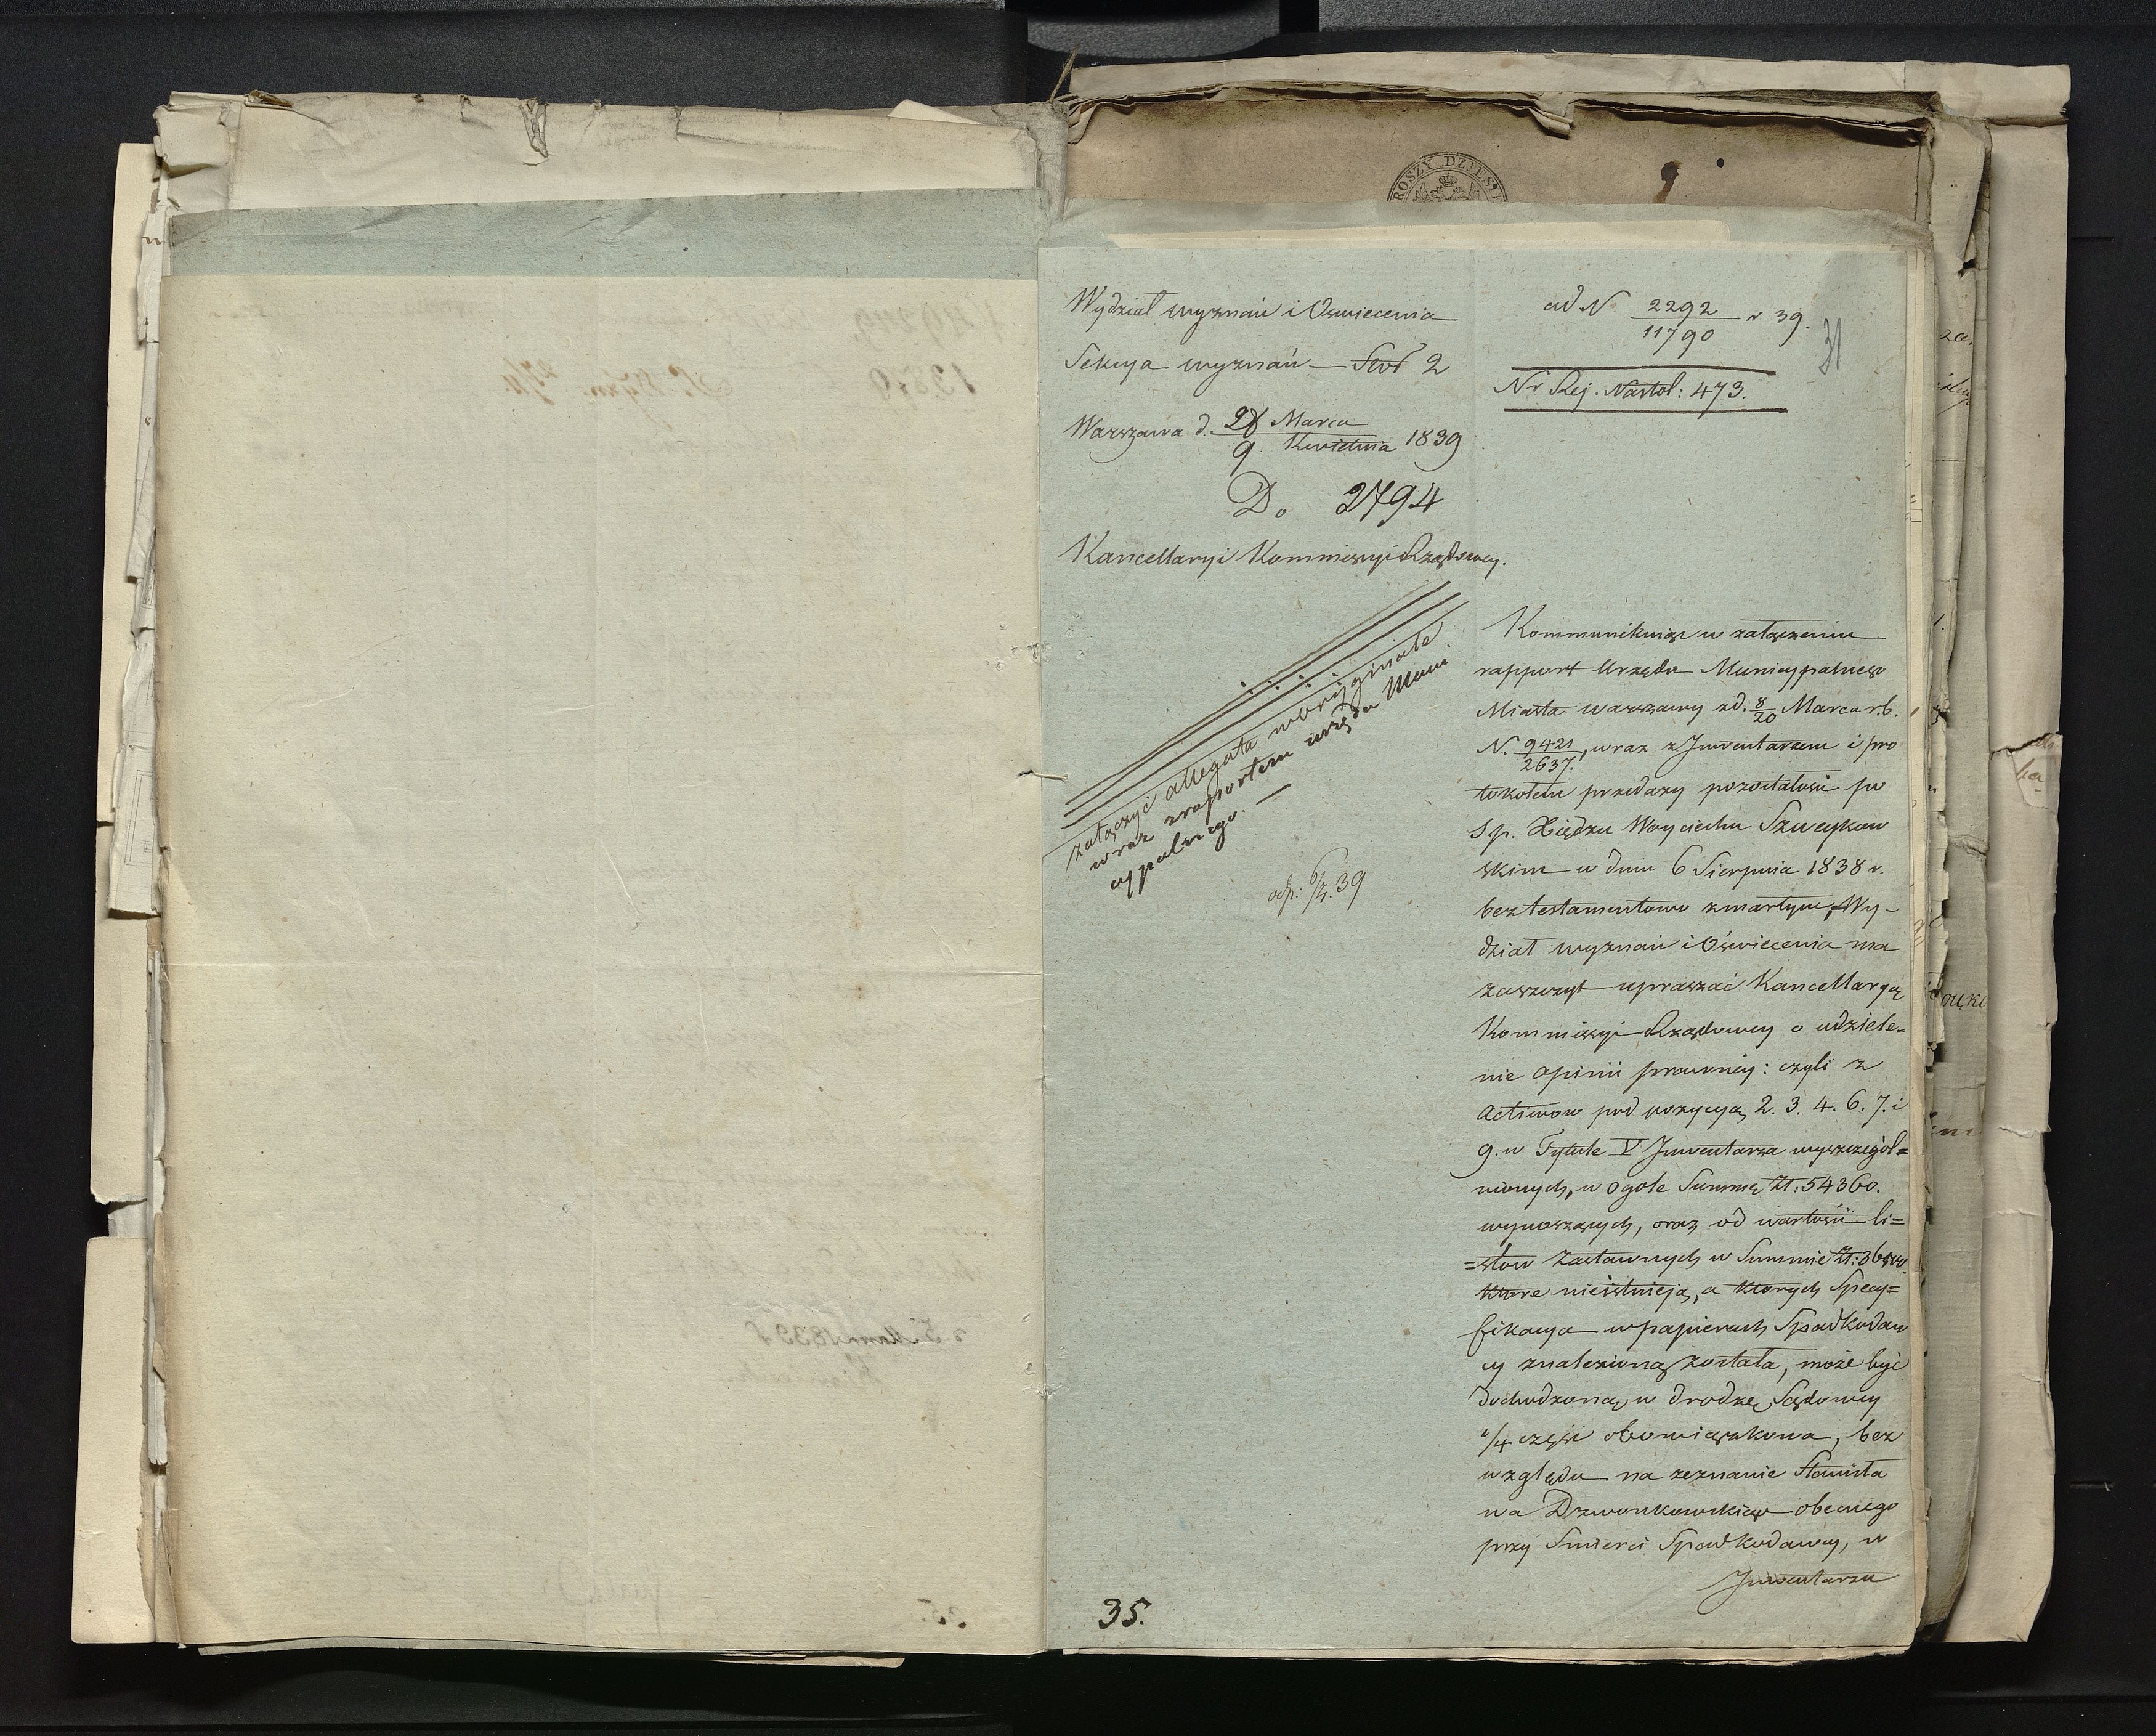 ROSZY DZIESI
Wydział wyznań i Oświecenia
Sekcya wyznań — Stoł 2
Warszawa d. 28 Marca
9 Kwietnia 1839
Do 2794
Kancellaryi Kommissyi Rządowey.
ad N 2292
11790 r 39.
31
Nr Rej. Nastol: 473.
załączyć allegata w oryginale
wraz z raportem urzędu Muni
cypalnego. —
odp: 6/4. 39
Kommunikując w załączeniu
rapport Urzędu Municypalnego
Miasta Warszawy z d. 8/20 Marca r. b.
N. 9421/2637., wraz z Inwentarzem i pro
tokołem przedaży pozostałości po
S p. Xiędzu Woyciechu Szweykow
skim w dniu 6 Sierpnia 1838 r.
beztestamentowo zmarłym, Wy-
dział wyznań i Oświecenia ma
zaszczyt upraszać Kancellaryą
Kommissyi Rządowey o udziele-
nie opinii prawney: czyli z
Activow pod pozycyą 2. 3. 4. 6. 7. i
9. w Tytule V Inwentarza wyszczegól=
nionych, w ogole Summę Zł: 54360.
wynoszących, oraz od wartości li=
=stow Zastawnych w Summie Zł:
ktore nieistnieją, a ktorych Specy=
fikacya w papierach Spadkodaw
cy znalezioną została, może być
dochodzoną w drodze Sądowey
1/4 części obowiązkowa, bez
względu na zeznanie Stanisła
wa Dzwonkowskiego obecnego
przy Smierci Spadkodawcy, w
Inwentarzu
35.